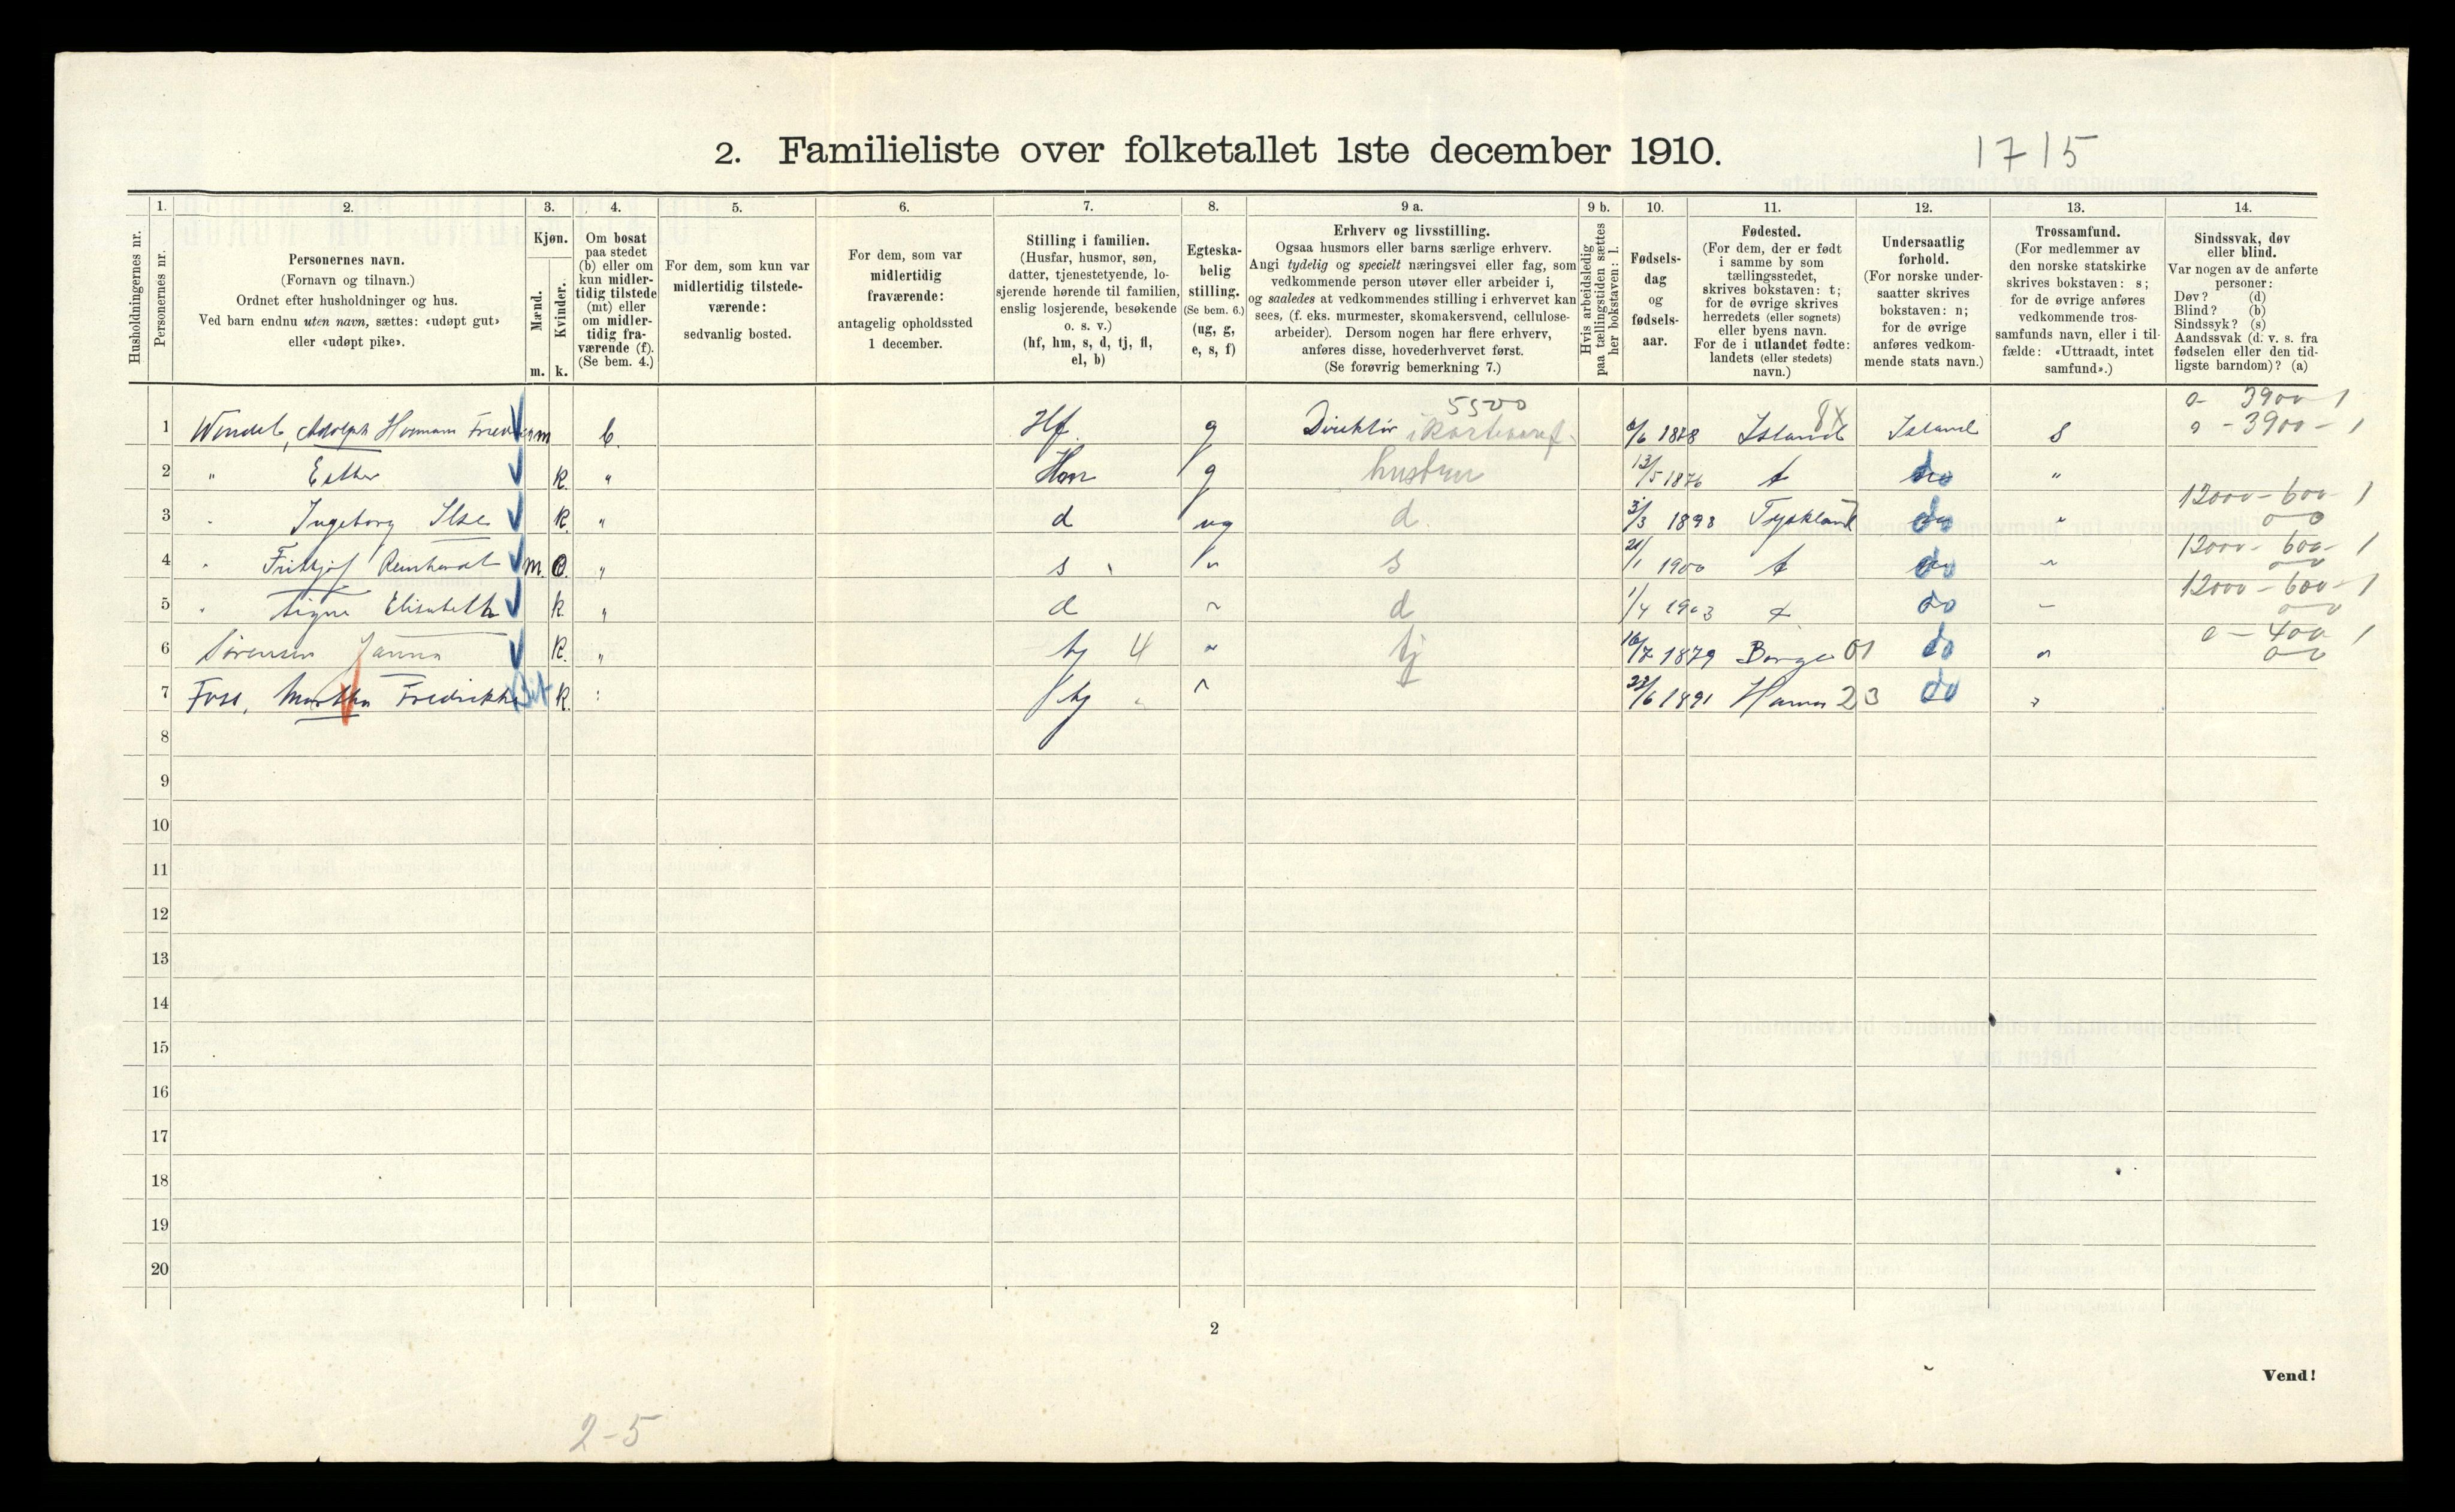 2. Familieliste over folketallet 1ste december 1910.
1715
Husholdningernes nr.
1.
Personernes nr.
2.
Personernes navn.
(Fornavn og tilnavn.)
Ordnet efter husholdninger og hus.
Ved barn endnu uten navn, sættes: «udøpt gut»
eller «udøpt pike».
3.
Kjøn.
Mænd.
Kvinder.
m. k.
4.
Om bosat
paa stedet
(b) eller om
kun midler-
tidig tilstede
(mt) eller
om midler-
tidig fra-
værende (f).
(Se bem. 4.)
5.
For dem, som kun var
midlertidig tilstede-
værende:
sedvanlig bosted.
6.
For dem, som var
midlertidig
fraværende:
antagelig opholdssted
1 december.
7.
Stilling i familien.
(Husfar, husmor, søn,
datter, tjenestetyende, lo-
sjerende hørende til familien,
enslig losjerende, besøkende
o. s. v.)
(hf, hm, s, d, tj, fl,
el, b)
8.
Egteska-
belig
stilling.
(Se bem. 6.)
(ug, g,
e, s, f)
9 a.
Erhverv og livsstilling.
Ogsaa husmors eller barns særlige erhverv.
Angi tydelig og specielt næringsvei eller fag, som
vedkommende person utøver eller arbeider i,
og saaledes at vedkommendes stilling i erhvervet kan
sees, (f. eks. murmester, skomakersvend, cellulose-
arbeider). Dersom nogen har flere erhverv,
anføres disse, hovederhvervet først.
(Se forøvrig bemerkning 7.)
9 b.
Hvis arbeidsledig
paa tællingstiden sættes
her bokstaven: l.
10.
Fødsels-
dag
og
fødsels-
aar.
11.
Fødested.
(For dem, der er født
i samme by som
tællingsstedet,
skrives bokstaven: t;
for de øvrige skrives
herredets (eller sognets)
eller byens navn.
For de i utlandet fødte:
landets (eller stedets)
navn.)
12.
Undersaatlig
forhold.
(For norske under-
saatter skrives
bokstaven: n;
for de øvrige
anføres vedkom-
mende stats navn.)
13.
Trossamfund.
(For medlemmer av
den norske statskirke
skrives bokstaven: s;
for de øvrige anføres
vedkommende tros-
samfunds navn, eller i til-
fælde: «Uttraadt, intet
samfund».)
14.
Sindssvak, døv
eller blind.
Var nogen av de anførte
personer:
Døv? (d)
Blind? (b)
Sindssyk? (s)
Aandssvak (d. v. s. fra
fødselen eller den tid-
ligste barndom)? (a)
5500 0 - 3900 - 1
1 Wendel, Adolph Hermann m b. Hf. g Direktør 1878 Island 8X Island s 0 - 3900 - 1
2 " Esther k. " Hm g hustru 13/5 1876 t do "
3 " Ingeborg Ilse k. " d ug d. 3/3 1898 Tyskland do " 12000 - 600 - 1
4 " Frithjof Reinhardt m. " s " s 21/1 1900 t do " 12000 - 600 - 1
5 " Signe Elisabeth k. " d " d 1/4 1903 t do " 12000 - 600 - 1
6 Sørensen Janna k. " tj 4 " tj 16/7 1879 Borge 01 do " 0 - 400 1
7 Foss, Martha Fredrikke k. " tj " " 23/6 1891 Hamar 23 do "
8
9
10
11
12
13
14
15
16
17
18
19
20
2
Vend!
2-5